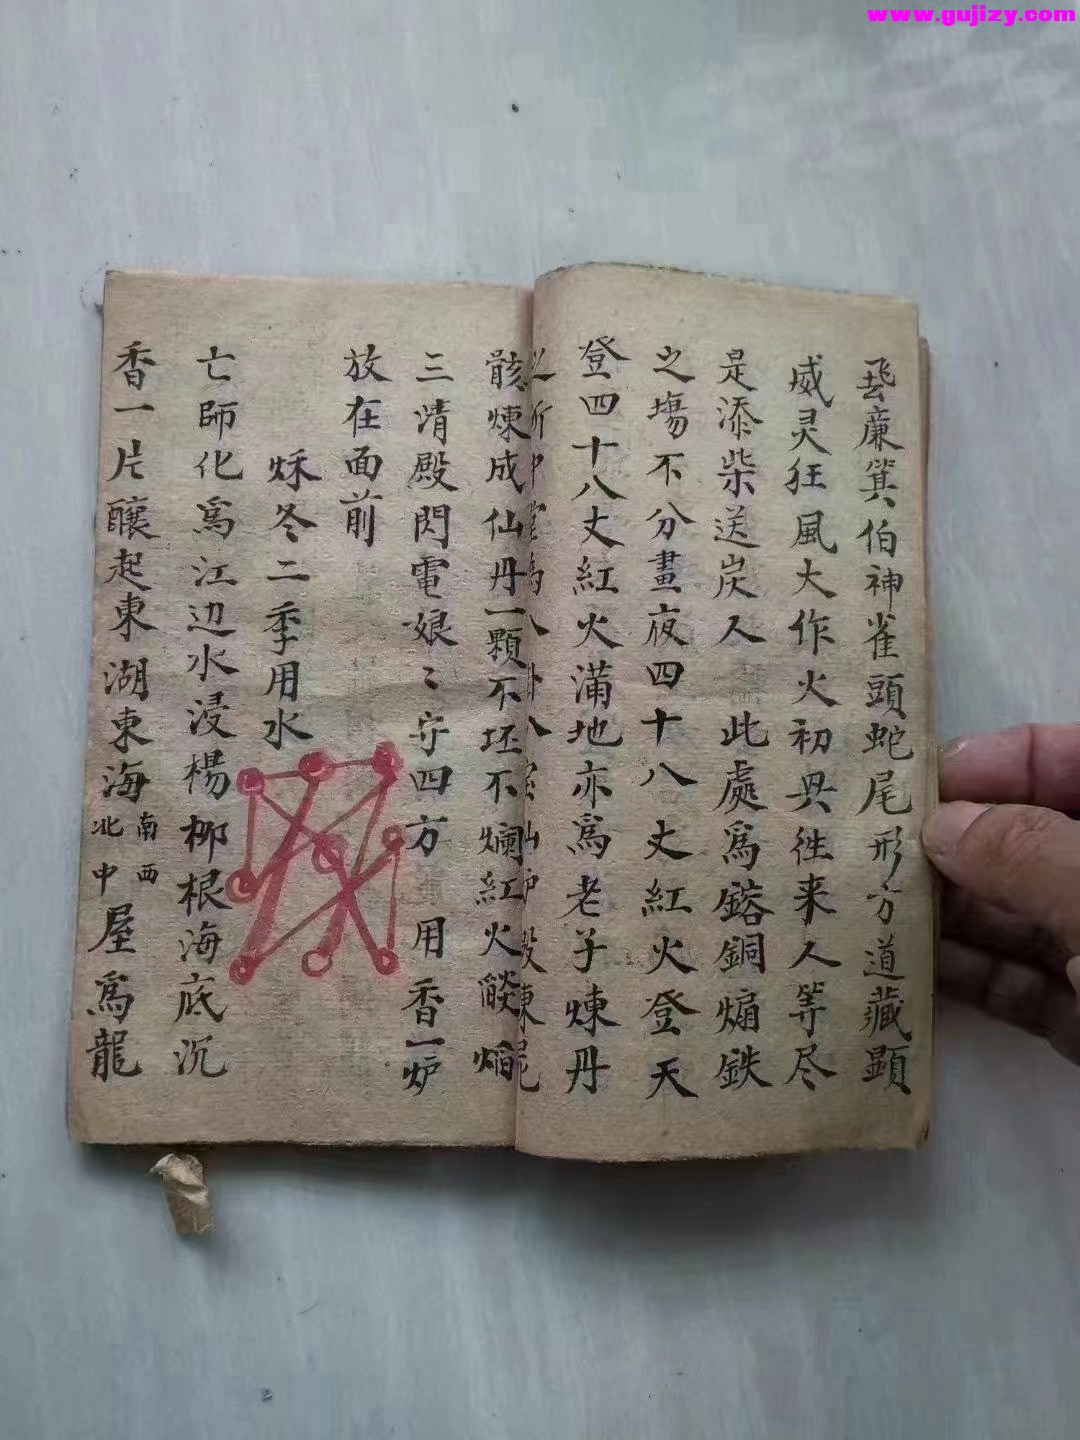 www.gujizy.com
飛廉箕伯神雀頭蛇尾形方道藏顕
威灵狂風大作火初具徃来人等尽
是添柴送炭人 此處爲鎔銅煽鉄
之塲不分晝夜四十八丈紅火登天
登四十八丈紅火滿地亦爲老子煉丹
骸煉成仙丹一顆不坯不爛紅火燄燄
三清殿閃電娘〻守四方 用香一炉
放在面前
烁冬二季用水
亡師化爲江边水浸楊柳根海底沉
香一片釀起東湖東海南西北中屋爲龍